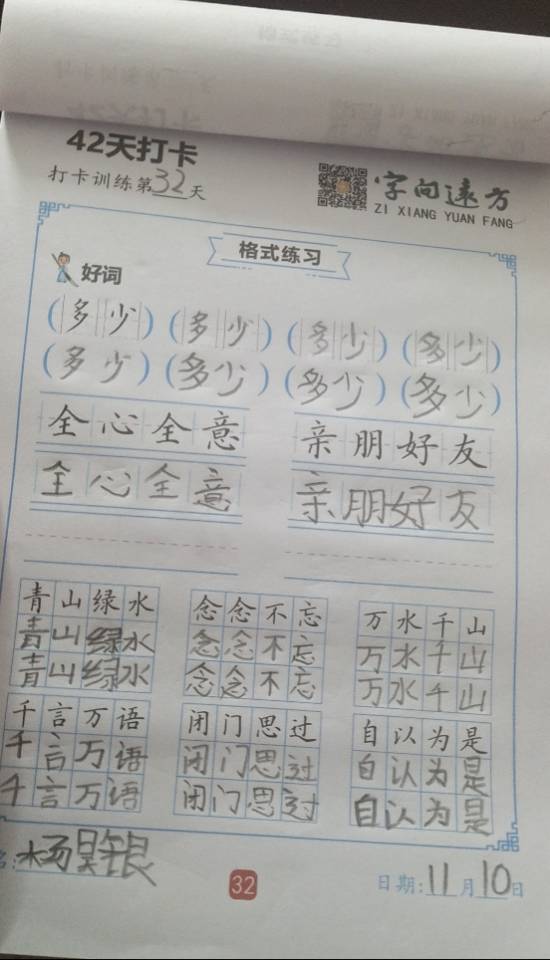 42天打卡
打卡训练第32天
字向远方
ZI XIANG YUAN FANG
格式练习
好词
(多少) (多少) (多少) (多少)
(多少) (多少) (多少) (多少)
全心全意 亲朋好友
全心全意 亲朋好友
青山绿水 念念不忘 万水千山
青山绿水 念念不忘 万水千山
青山绿水 念念不忘 万水千山
千言万语 闭门思过 自认为是
千言万语 闭门思过 自认为是
千言万语 闭门思过 自认为是
名:杨昊银
32
日期:11月10日